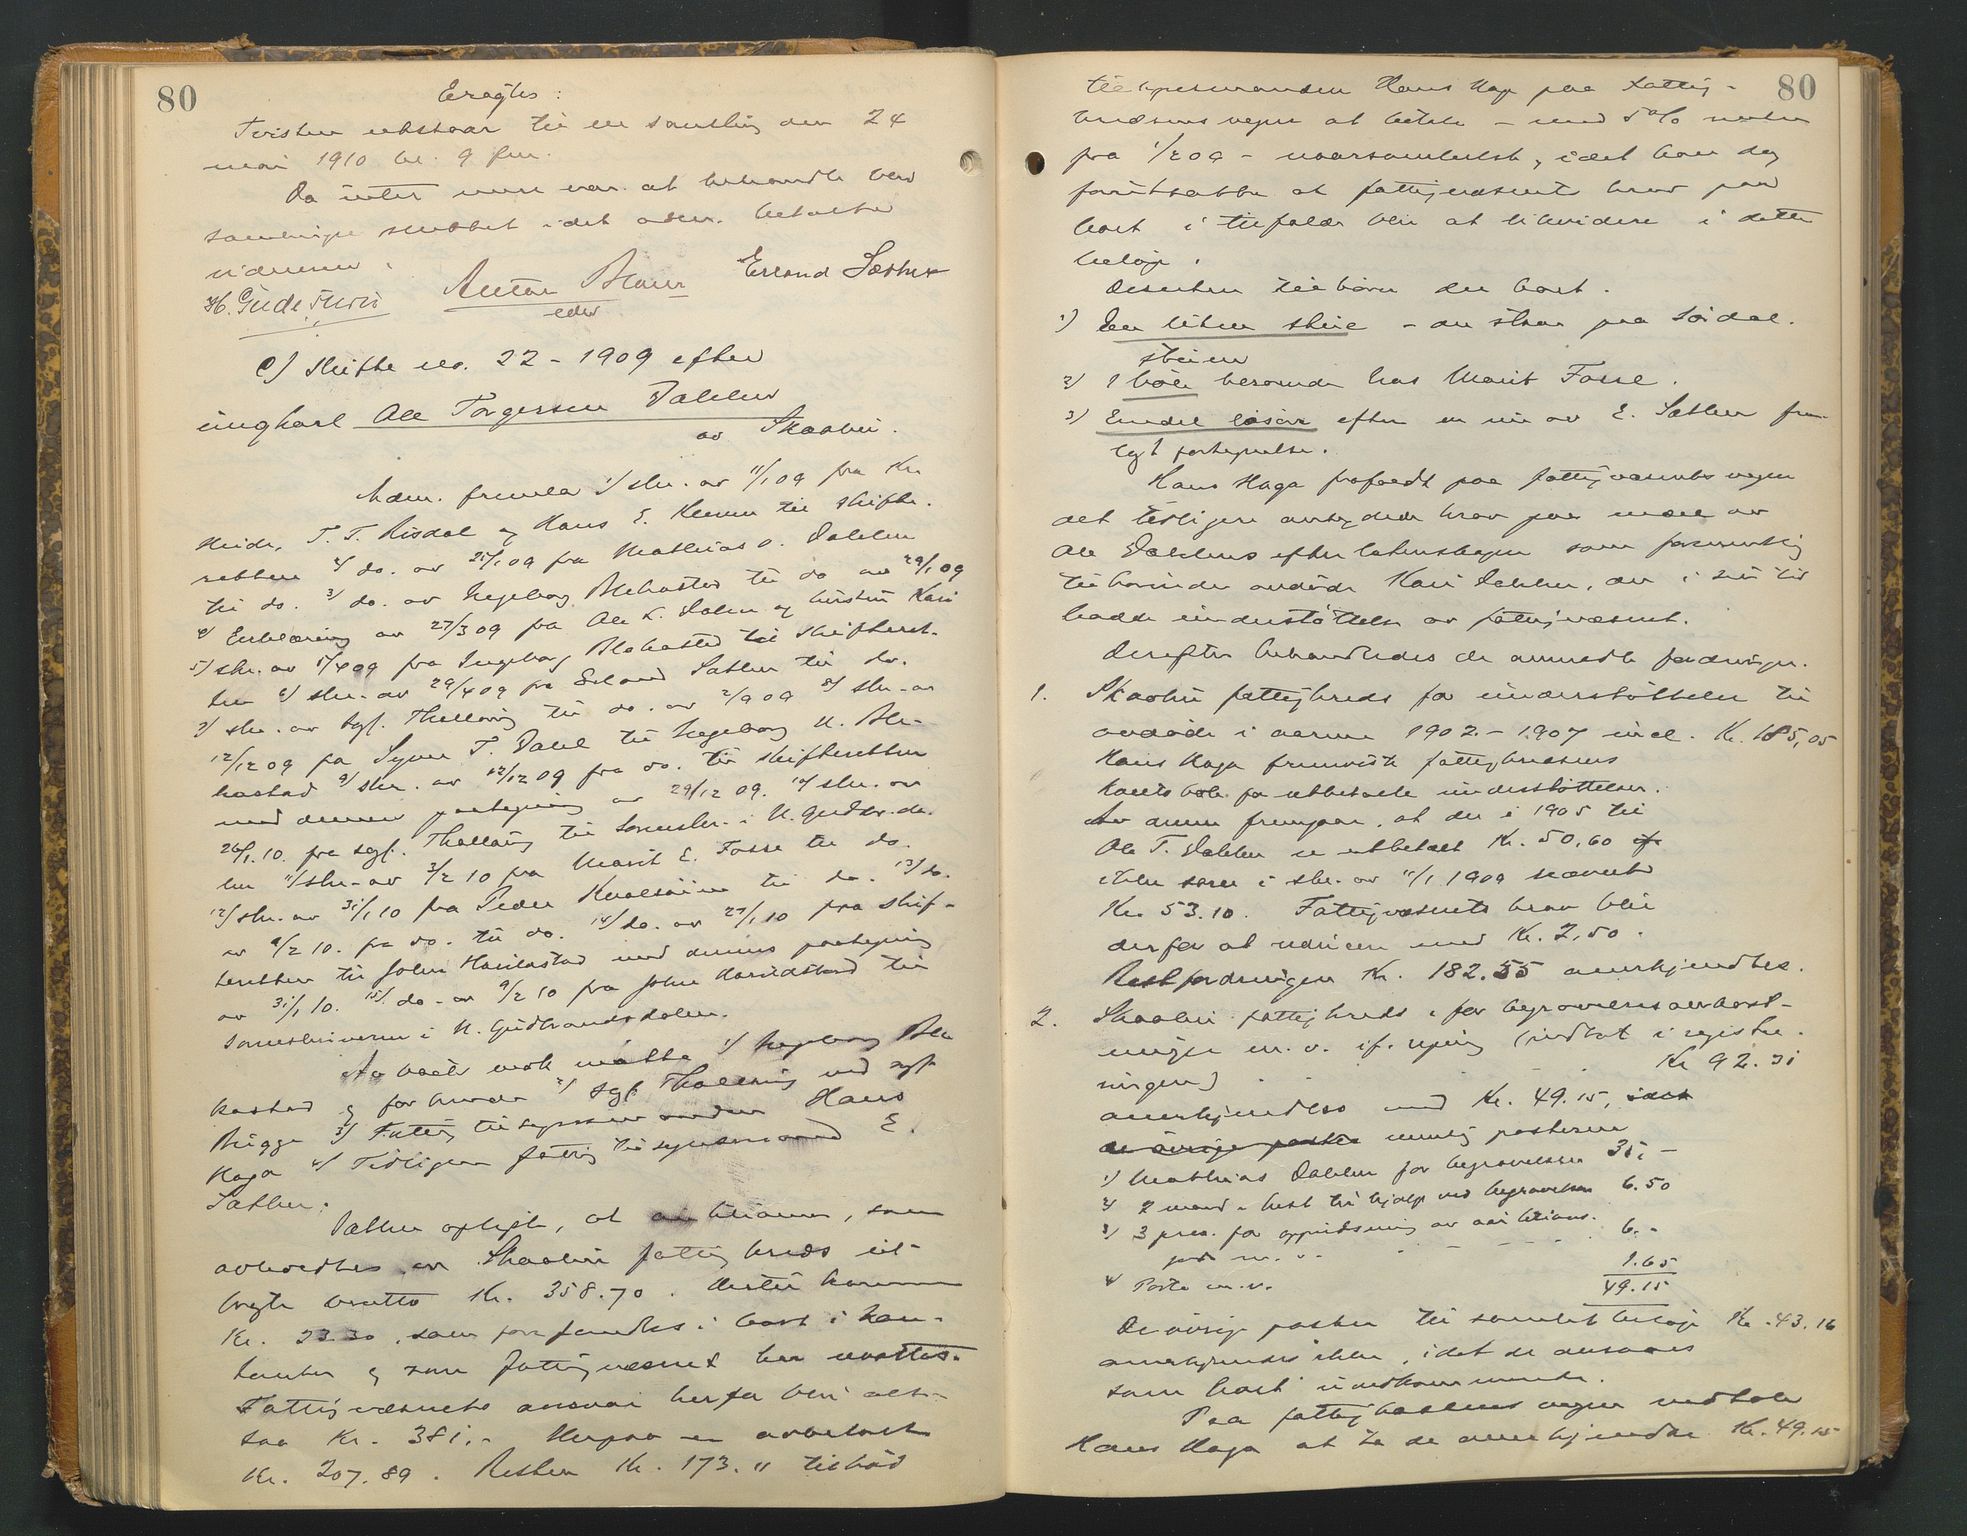 80
Eragtes:
Tvisten utstaar til en samling den 24
mai 1910 kl. 9 fm.
Da intet mere var at behandle blev
samlingen sluttet idet adm. betalte
vidnerne.
H. Gude Thriis Anton Blaur Erland Sæther
eder
C) Skifte no. 22 - 1909 efter
ungkarl Ole Torgersen Dahlen
av Skaabu.
Adm. fremla 1/ skr. av 11/1 09 fra Kr.
Heide, T. T. Risdal og Hans E. Kleven til skifte-
retten 2/ do. av 21/1 09 fra Mathias O. Dahlen
til do. 3/ do. av Ingeborg Blekastad til do av 29/1 09
4/ Erklæring av 27/3 09 fra Ole L. Dalen og hustru Kari
5/ skr. av 5/4 09 fra Ingeborg Blekastad til skifteret-
ten 6/ skr. av 29/4 09 fra Erland Sæther til do.
7/ skr. av sgf. Thallaug til do. av 2/9 09 8/ skr. av
12/12 09 fra Synne T. Dahl til Ingeborg U. Ble-
kastad 9/ skr. av 12/12 09 fra do. til skifteretten
med dennes paategning av 29/12 09. 10/ skr. av
26/1.10. fra sgf. Thallaug til Sorenskr. i N. Gudbr.da-
len 11/ skr. av 3/2 10 fra Marit E. Fosse til do.
12/ skr. av 31/1 10 fra Peder Kvalsøien til do. 13/ do.
av 9/2 10. fra do. til do. 14/ do. av 27/1 10 fra skif-
teretten til John Harildstad med dennes paategning
av 31/1 10. 15/ do. av 9/2 10 fra John Harildstad til
Sorenskriveren i N. Gudbrandsdalen.
Av vedk. møtte 1/ Ingeborg Ble
kastad og for hende 2/ sgf. Thallaug ved sgf.
Brügge 3/ Fattigtilsynsmanden Hans
Haga 4/ Tidligere fattigtilsynsmand E.
Sæther.
Sæther oplyste, at auktionen, som
avholdtes av Skaabu fattigkreds ut-
bragte brutto Kr. 358.70. Hertil kommer
Kr. 22.30, som forefandtes i boet i kon-
tanter og som fattigvæsenet har mottat.
Fattigvæsenets ansvar herfor blir alt-
saa Kr. 381,- Herpaa er avbetalt
Kr. 207.89. Resten Kr. 173.11 tilbød
80
tilsynsmanden Hans Haga paa Fattig-
kredsens vegne at betale - med 5% renter
fra 1/2 09 - naarsomhelst, idet han dog
forutsatte at fattigvæsenets krav paa
boet i tilfælde blir at likvidere i dette
beløp.
Desuten tilhører der boet.
1) Den liten skur - der staar paa Sørdal.
støien
2) 1 bøk beroende hos Marit Fosse.
3) Endel løsøre efter en nu av E. Sæther frem-
lagt fortegnelse.
Hans Haga frafaldt paa fattigvæsenets vegne
det tidligere antydede krav paa endel av
Ole Dahlens efterlatenskaper som formentlig
tilhørende avdøde Kari Dahlen, der i sin tid
hadde understøttelse av fattigvæsenet.
Derefter behandledes de anmeldte fordringer.
1. Skaabu fattigkreds for understøttelse til
avdøde i aarene 1902 - 1907 incl. Kr. 185,05
Hans Haga fremviste fattigkredsens
kontobok for utbetalte understøttelser.
Av denne fremgaar, at der i 1905 til
Ole T. Dahlen er utbetalt Kr. 50.60 og
ikke som i skr. av 11/1 1909 nævnte
Kr. 53.10. Fattigvæsenets krav blir
derfor at reducere med Kr. 2,50.
Restfordringen Kr. 182.55 anerkjendtes.
2. Skaabu fattigkreds, for begravelsesomkost-
ninger m. v. if. regning (indtat i registre-
ringen) Kr 92.31
anerkjendtes med Kr. 49.15, idet
de øvrige poster nemlig posterne
1) Mathias Dahlen for begravelsen 35,-
2) 2 mand & hest til hjælp ved begravelsen 6.50
3) 3 pers. for oppudsning av auktions-
gods m. v. 6.-
4) Porto m.v. 1.65
49.15
De øvrige poster til samlet beløp Kr. 43.16
anerkjendes ikke, idet de ansaaes
som boet uvedkommende.
Paa fattigkassens vegne vedtok
Hans Haga at ta de anerkjendte Kr. 49.15